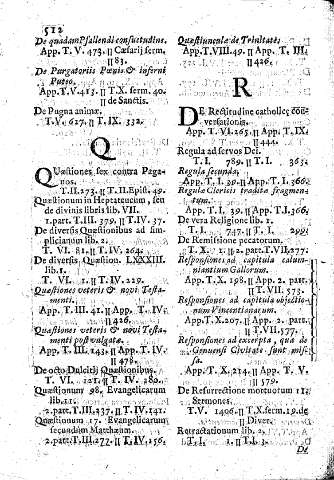 512
De quadam Psallendi consuetudine.
App. T. V. 473. ¶ Cæsarij serm.
¶ 83.
De Purgatoriis Pœnis & inferni
Puteo.
App. T.V.413. ¶ T.X. serm. 40.
¶ de Sanctis.
De Pugna animæ.
T. V. 627. ¶ T. IX. 332.
Q
QUæstiones sex contra Paga-
nos.
T.II.273. ¶ T.II.Epist. 49.
Quæstionum in Heptateucum, seu
de divinis libris lib. VII.
1.part. T.III. 379. ¶ T.IV. 37.
De diversis Quæstionibus ad sim-
plicianum lib. 2.
T. VI. 81. ¶ T. IV. 264.
De diversis Quæstion. LXXXIII.
lib. 1.
T. VI. 1. ¶ T. IV. 229.
Quæstiones veteris & novi Testa-
menti.
App. T. III. 41. ¶ App. T. IV.
Quæstiones veteris & novi Testa-
menti post vulgatæ.
App. T. III. 143. ¶ App. T. IV
¶ 478.
De octo Dulcitij Quæstionibus.
T. VI. 121. ¶ T. IV. 280.
Quæstionum 98. Evangelicarum
lib. 11.
2.part. T.III. 237. ¶ T.IV. 141.
Quæstionum 17. Evangelicarum
secundum Matthæum.
2.part. T.III. 277. ¶ T. IV. 156.
Quæstiunculæ de Trinitate.
App.T.VIII.49. ¶ App. T. III.
¶ 426.
R
DE Rectitudine catholicę con-
versationis.
App. T. VI.265. ¶ App. T. IX.
¶ 444.
Regula ad servos Dei.
T. I. 789. ¶ T. I. 363.
Regula secunda.
App. T. I. 39. ¶ App. T. I. 366.
Regulæ Clericis traditæ fragmen-
tum.
App. T. I. 39. ¶ App. T.I. 366.
De vera Religione lib. 1.
T. I. 747. ¶ T. I. 299.
De Remissione peccatorum.
T. X. 1. ¶ 2. part. T.VII.277.
Responsiones ad capitula calum-
niantium Gallorum.
App. T. X. 198. ¶ App. 2. part.
¶ T.VII. 573.
Responsiones ad capitula objectio-
num Vincentianarum.
App.T.X.207. ¶ App. 2. part.
¶ T.VII. 577.
Responsiones ad excerpta, quæ de
Genuensi Civitate sunt mis-
sa.
App. T. X. 214. ¶ App. T. V
¶ 579.
De Resurrectione mortuorum 11.
Sermones.
T. V. 1406. ¶ T.X. serm. 19. de
¶ Diver.
Retractationum lib. 2.
T. I. 1. ¶ T. I. 3.
De